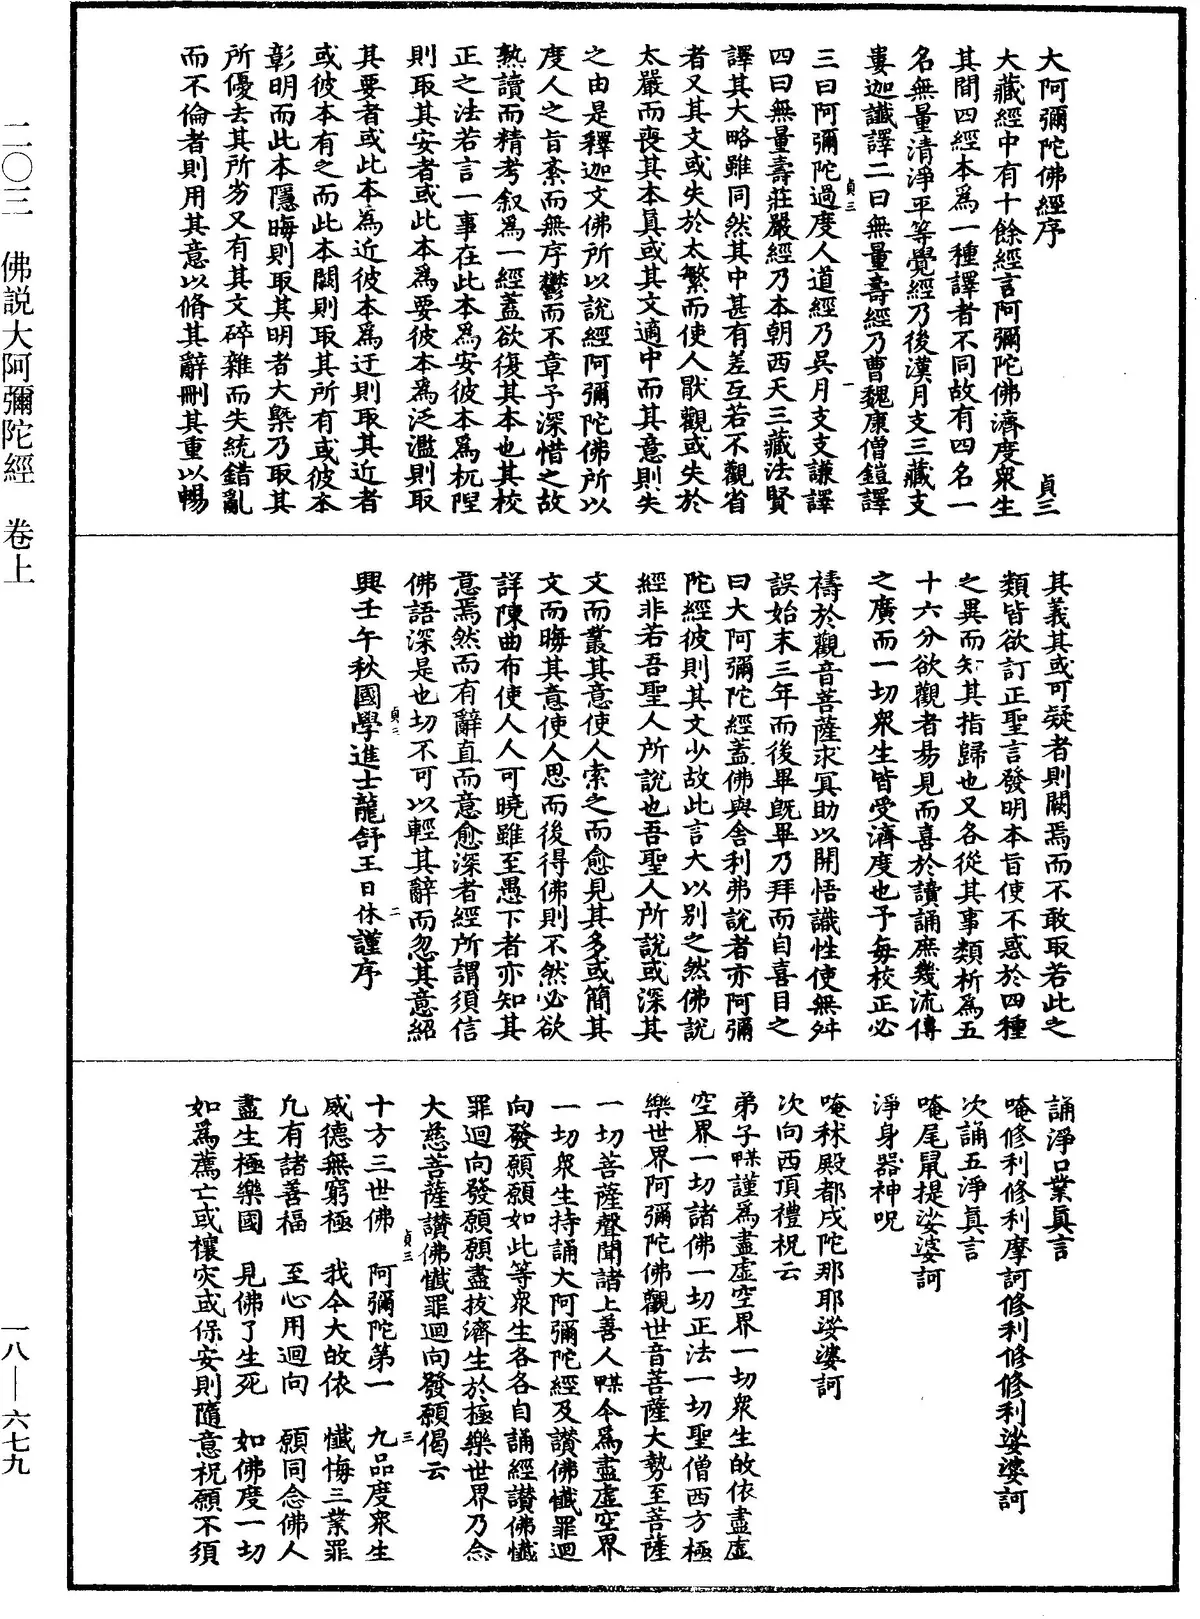 大阿彌陀佛經序　貞三
大藏經中有十餘經言阿彌陀佛濟度衆生
其間四經本爲一種譯者不同故有四名一
名無量清淨平等覺經乃後漢月支三藏支
婁迦讖譯二曰無量壽經乃曹魏康僧鎧譯
貞三　一
三曰阿彌陀過度人道經乃吳月支支謙譯
四曰無量壽莊嚴經乃本朝西天三藏法賢
譯其大略雖同然其中甚有差互若不觀省
者又其文或失於太繁而使人猒觀或失於
太嚴而喪其本眞或其文適中而其意則失
之由是釋迦文佛所以說經阿彌陀佛所以
度人之旨紊而無序鬱而不章予深惜之故
熟讀而精考叙爲一經蓋欲復其本也其校
正之法若言一事在此本爲安彼本爲杌隉
則取其安者或此本爲要彼本爲泛濫則取
其要者或此本爲近彼本爲迂則取其近者
或彼本有之而此本闕則取其所有或彼本
彰明而此本隱晦則取其明者大槩乃取其
所優去其所劣又有其文碎雜而失統錯亂
而不倫者則用其意以脩其辭刪其重以暢
其義其或可疑者則闕焉而不敢取若此之
類皆欲訂正聖言發明本旨使不惑於四種
之異而知其指歸也又各從其事類析爲五
十六分欲觀者易見而喜於讀誦庶幾流傳
之廣而一切衆生皆受濟度也予每校正必
禱於觀音菩薩求冥助以開悟識性使無舛
誤始末三年而後畢旣畢乃拜而自喜目之
曰大阿彌陀經蓋佛與舍利弗說者亦阿彌
陀經彼則其文少故此言大以別之然佛說
經非若吾聖人所說也吾聖人所說或深其
文而叢其意使人索之而愈見其多或簡其
文而晦其意使人思而後得佛則不然必欲
詳陳曲布使人人可曉雖至愚下者亦知其
意焉然而有辭直而意愈深者經所謂須信
佛語深是也切不可以輕其辭而忽其意紹
貞三　二
興壬午秋國學進士龍舒王日休謹序
誦淨口業眞言
唵修利修利摩訶修利修修利娑婆訶
次誦五淨眞言
唵尾鼠提娑婆訶
淨身器神呪
唵秫殿都戌陀那耶娑婆訶
次向西頂禮祝云
弟子某謹爲盡虛空界一切衆生的依盡虛
空界一切諸佛一切正法一切聖僧西方極
樂世界阿彌陀佛觀世音菩薩大勢至菩薩
一切菩薩聲聞諸上善人某今爲盡虛空界
一切衆生持誦大阿彌陀經及讃佛懺罪迴
向發願願如此等衆生各各自誦經讃佛懺
罪迴向發願願盡拔濟生於極樂世界乃念
大慈菩薩讃佛懺罪迴向發願偈云
貞三　三
十方三世佛　阿彌陀第一　九品度衆生
威德無窮極　我今大的依　懺悔三業罪
凢有諸善福　至心用迴向　願同念佛人
盡生極樂國　見佛了生死　如佛度一切
如爲薦亡或禳灾或保安則隨意祝願不須
二〇三　佛說大阿彌陀經　卷上
一八—六七九